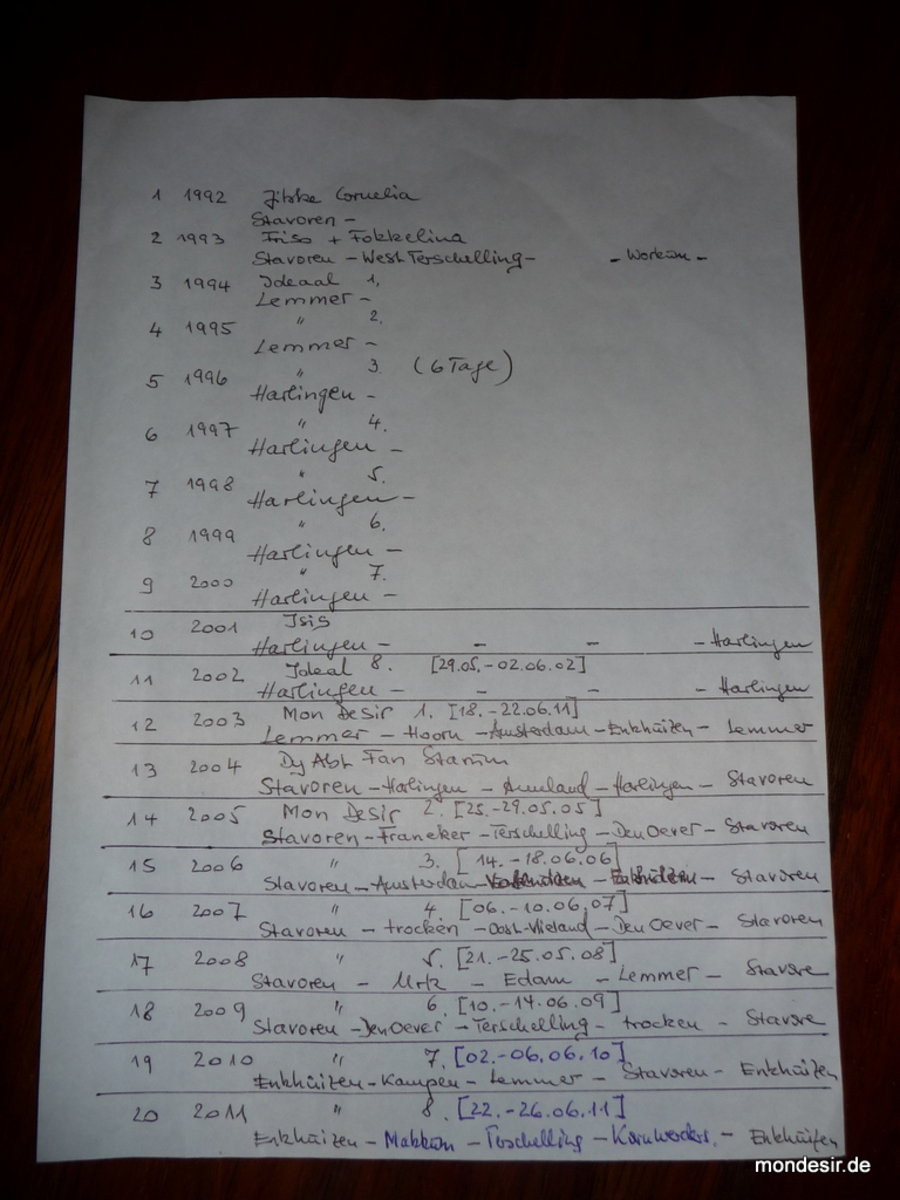 1 1992 Jitske Cornelia
Stavoren -
2 1993 Friso + Fokkelina
Stavoren - West Terschelling - - Workum -
3 1994 Ideaal 1.
Lemmer -
4 1995 " 2.
Lemmer -
5 1996 " 3. (6 Tage)
Harlingen -
6 1997 " 4.
Harlingen -
7 1998 " 5.
Harlingen -
8 1999 " 6.
Harlingen -
9 2000 " 7.
Harlingen -
10 2001 Isis
Harlingen - - - - Harlingen
11 2002 Ideal 8. [29.05.-02.06.02]
Harlingen - - - - Harlingen
12 2003 Mon Desir 1. [18.-22.06.11]
Lemmer - Hoorn - Amsterdam - Enkhuizen - Lemmer
13 2004 Dy Abt Fan Starum
Stavoren - Harlingen - Ameland - Harlingen - Stavoren
14 2005 Mon Desir 2. [25.-29.05.05]
Stavoren - Franeker - Terschelling - Den Oever - Stavoren
15 2006 " 3. [14.-18.06.06]
Stavoren - Amsterdam - - Stavoren
16 2007 " 4. [06.-10.06.07]
Stavoren - trocken - Oost-Vlieland - Den Oever - Stavoren
17 2008 " 5. [21.-25.05.08]
Stavoren - Urk - Edam - Lemmer - Stavore
18 2009 " 6. [10.-14.06.09]
Stavoren - Den Oever - Terschelling - trocken - Stavore
19 2010 " 7. [02.-06.06.10]
Enkhuizen - Kampen - Lemmer - Stavoren - Enkhuizen
20 2011 " 8. [22.-26.06.11]
Enkhuizen - Makkum - Terschelling - Kornwerders. - Enkhuizen
mondesir.de